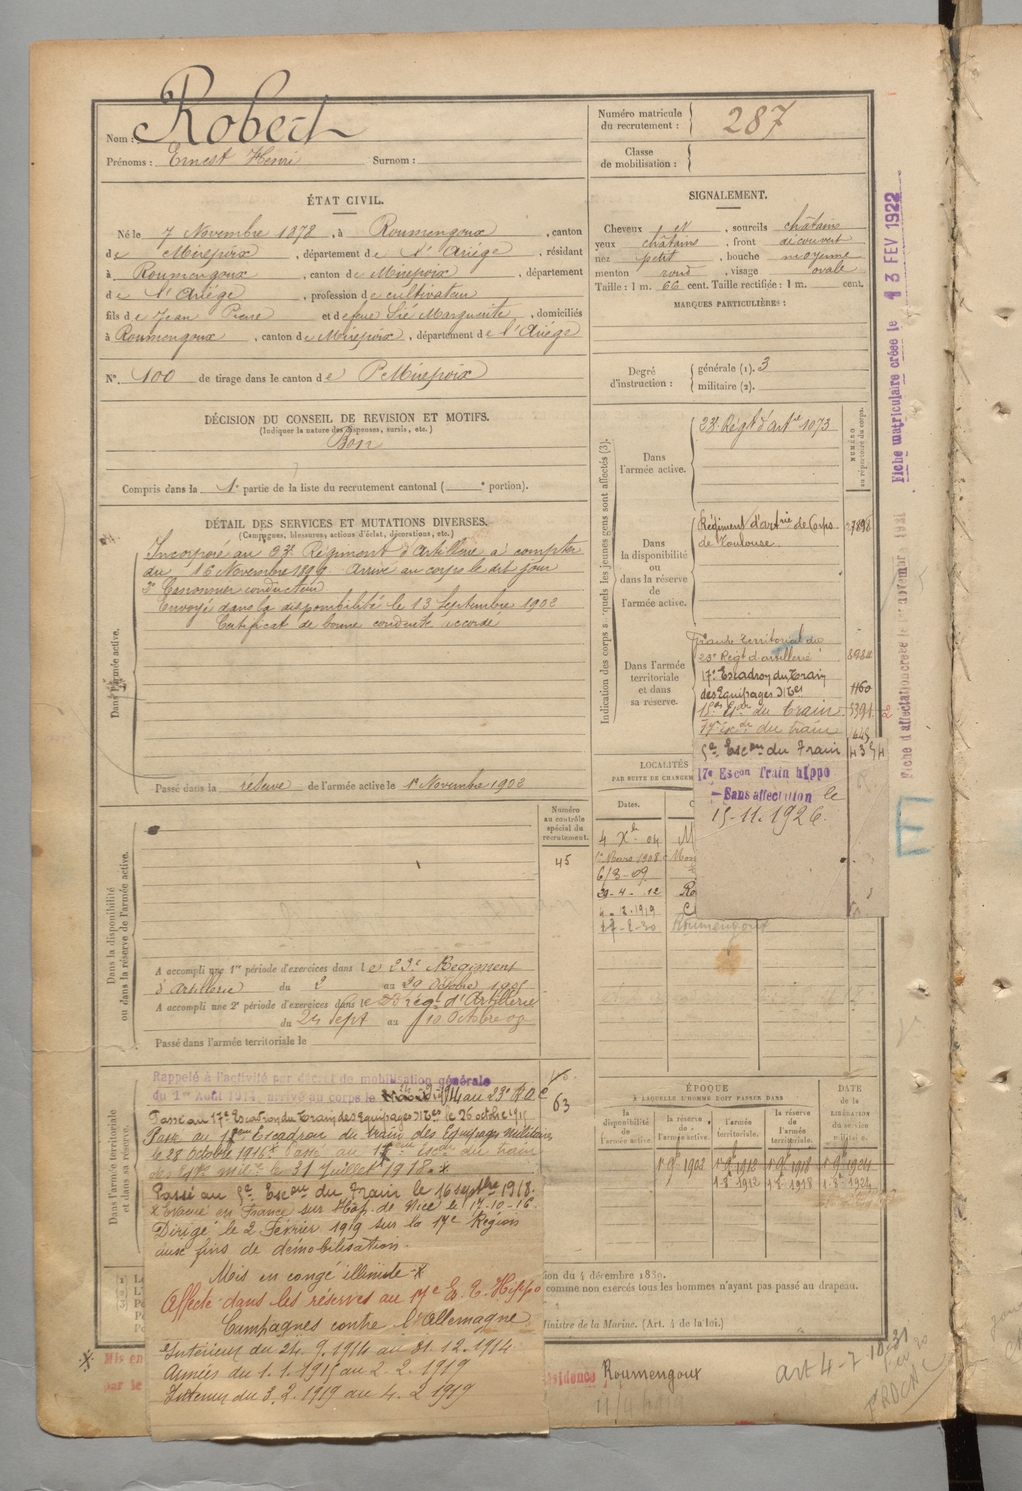 Nom : Robert
Prénoms : Ernest Henri Surnom :
Numéro matricule du recrutement : 287
Classe de mobilisation :
ÉTAT CIVIL.
Né le 7 Novembre 1878, à Roumengoux, canton
de Mirepoix, département de l'Ariége, résidant
à Roumengoux, canton de Mirepoix, département
de l'Ariége, profession de cultivateur
fils de Jean Pierre et de feue Sié Marguerite, domiciliés
à Roumengoux, canton de Mirepoix, département de l'Ariége
N° 100 de tirage dans le canton de Mirepoix
SIGNALEMENT.
Cheveux N, sourcils châtains
yeux châtains, front découvert
nez petit, bouche moyenne
menton rond, visage ovale
Taille : 1 m. 66 cent. Taille rectifiée : 1 m. cent.
MARQUES PARTICULIÈRES :
Degré d'instruction : générale (1). 3
militaire (2).
DÉCISION DU CONSEIL DE REVISION ET MOTIFS.
(Indiquer la nature des dispenses, sursis, etc.)
Bon
Compris dans la 1e partie de la liste du recrutement cantonal ( e portion).
DÉTAIL DES SERVICES ET MUTATIONS DIVERSES.
(Campagnes, blessures, actions d'éclat, décorations, etc.)
Dans l'armée active.
Incorporé au 23e Régiment d'Artillerie à compter
du 16 Novembre 1899 Arrivé au corps le dit jour
conducteur
Envoyé dans la disponibilité le 13 Septembre 1902
Certificat de bonne conduite accordé
Passé dans la réserve de l'armée active le 1r Novembre 1902
Indication des corps auxquels les jeunes gens sont affectés (3).
NUMÉRO au répertoire du corps.
Dans l'armée active.
23e Régt d'artie 1073
Dans la disponibilité ou dans la réserve de l'armée active.
Régiment d'artrie de Corps
de Toulouse
Dans l'armée territoriale et dans sa réserve.
territorial du
23e Régt d'artillerie
17e Escadron du Train
des Equipages Mres 1160
du Train
du train
5e Escon du Train 4354
17e Escon Train hippo
Sans affectation le
15-11.1926
Fiche matriculaire créée le 13 FEV 1922
E
LOCALITÉS
PAR SUITE DE CHANGEM
Dates.
4 Xbre 04
1er Mars 1908
6/3-09
29-4-12 Ro
4-2-1919
17-2-30 Roumengoux
Dans la disponibilité ou dans la réserve de l'armée active.
Numéro au contrôle spécial du recrutement.
45
A accompli une 1re période d'exercices dans le 23e Régiment
d'Artillerie du 2 au 29 Octobre 1905
A accompli une 2e période d'exercices dans le 23 Régt d'Artillerie
du 24 Sept au 10 Octobre 08
Passé dans l'armée territoriale le
Dans l'armée territoriale et dans sa réserve.
Rappelé à l'activité par décret de mobilisation générale
du 1er Août 1914, arrivé au corps le 1914 au 23e R.A.C
63
Passé au 17e Escadron du Train des Equipages Mres le 26 octbre 1915
Passé au Escadron du train des Equipages Militaires
le 28 Octobre 1916 Passé au du train
des Eqpges milres le 31 Juillet 1918. x
Passé au 5e Escon du Train le 16 septbre 1918.
x Evacué en France sur Hôp. de Nice le 17-10-16.
Dirigé le 2 Février 1919 sur la 17e Région
aux fins de démobilisation.
Mis en congé illimité x
Affecté dans les réserves au 17e E. T. Hippo
Campagnes contre l'Allemagne
Intérieur du 24.9.1914 au 31.12.1914
Armées du 1.1.1915 au 2.2.1919
Intérieur du 3.2.1919 au 4.2.1919
ÉPOQUE
À LAQUELLE L'HOMME DOIT PASSER DANS
la disponibilité de l'armée active.
la réserve de l'armée active.
l'armée territoriale.
la réserve de l'armée territoriale.
DATE de la LIBÉRATION du service militaire.
1r 9bre 1902
1r 9bre 1912
1r 9bre 1918
1r 9bre 1924
1-8bre 1912
1-8-1918
1-8bre 1924
tion du 4 décembre 1889.
comme non exercés tous les hommes n'ayant pas passé au drapeau.
Ministre de la Marine. (Art. 4 de la loi.)
Mis en
par le
sidence Roumengoux
11/4 1919
art 4-7